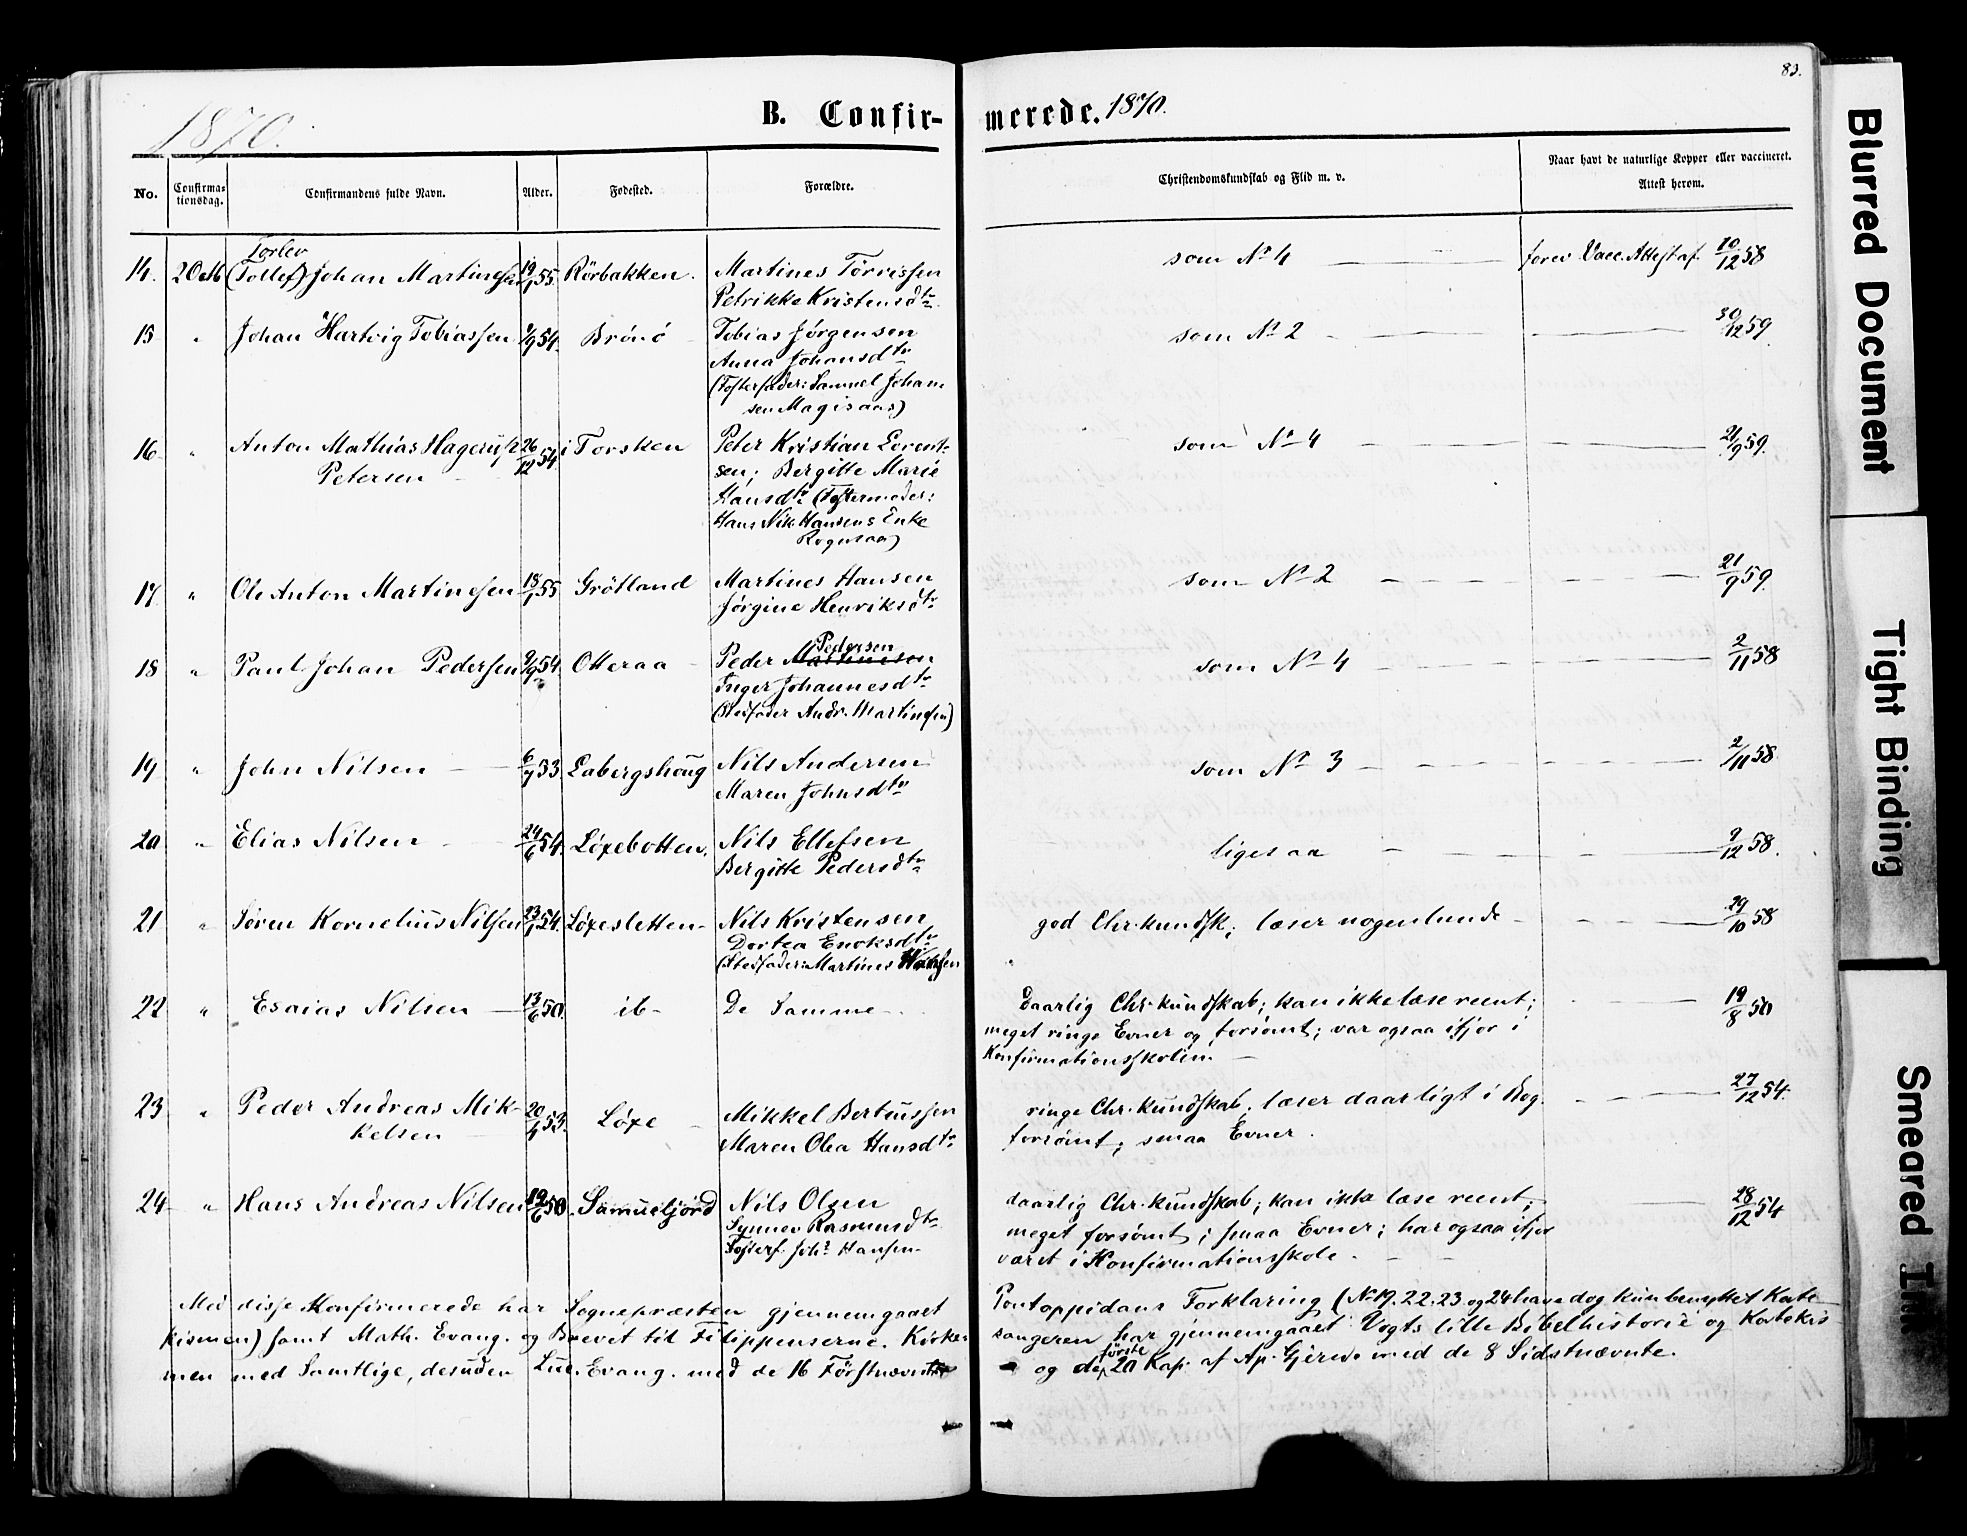 83.
1870.
B. Confir- merede. 1870.
No.
Confirma-
tionsdag.
Confirmandens fulde Navn.
Alder.
Fødested.
Forældre.
Christendomskundskab og Flid m. v.
Naar havt de naturlige Kopper eller vaccineret.
Attest herom.
Torlev
14. (Tollef) Johan Martinessen 19/1 55. Rörbakken. Martines Törrissen som No 4 Vacc. Attest af 10/12 58
Petrikke Kristensdtr
15 " Johan Hartvig Tobiassen 54. Brönö Tobias Jörgensen som No 2 30/12 59.
Anna Johansdtr
(Fosterfader: Samuel Johan-
sen Magisaas)
16 " Anton Mathias Hagerup 26/12 54 i Torsken Peter Kristian Lorent- som No 4 21/9 59.
Petersen sen; Bergitte Marie
Hansdtr (Fostermoder:
Hans Nik. Hansens Enke
17. " Ole Anton Martinessen 18/1 55 Grötland Martines Hansen som No 2 21/9 59.
Jörgine Henriksdtr
Pedersen
18 " Paul Johan Pedersen 9/9 54. Otteraa Peder Martinesen som No 4 2/11 58
Inger Johannesdtr
(Stedfader Andr. Martinesen)
19 " John Nilsen 6/7 53. Labergshoug Nils Andersen som No 3 2/11 58.
Maren Johnsdtr
20 " Elias Nilsen 24/6 54. Löxebotten. Nils Ellefsen ligesaa 9/12 58.
Bergitte Pedersdtr
21 " Sören Kornelius Nilsen 23/1 54. Löxesletten Nils Kristensen god Chr. kundsk; læser nogenlunde 29/10 58
Dortea Enoksdtr
(Stedfader: Martines
22 " Esaias Nilsen 13/6 50. ib- De Samme Daarlig Chr. kundskab; kan ikke læse reent; 19/8 50
meget ringe Evner og forsömt; var ogsaa ifjor i
Konfirmationsskolen.
23 " Peder Andreas Mik- 20/4 53. Löxe Mikkel Berteussen ringe Chr. kundskab, læser daarligt i Bog. 27/12 54.
kelsen Maren Olea Hansdtr forsömt; smaa Evner.
24 " Hans Andreas Nilsen 19/6 50. Samueljord Nils Olsen daarlig Chr. kundskab; kan ikke læse reent; 28/12 54
Synnev Rasmusdtr meget forsömt; smaa Evner; har ogsaa ifjor
Fosterf. Johs Hansen været i Konfirmationsskole.
Med disse Konfirmerede har Sognepræsten gjennemgaaet Pontoppidans Forklaring (No 19. 22. 23 og 24 have dog kun benyttet Kate-
kismen) samt Math. Evang. og Brevet til Filippenserne. Kirke- sangeren har gjennemgaaet Vogts lille Bibelhistorie og Katekis-
förste
men med Samtlige, desuden Luc. Evang. med de 16 Förstnævnte og de 20 Kap. af Ap. Gjern. med de 8 Sidstnævnte.
Blurred Document
Tight Binding
Smeared Ink